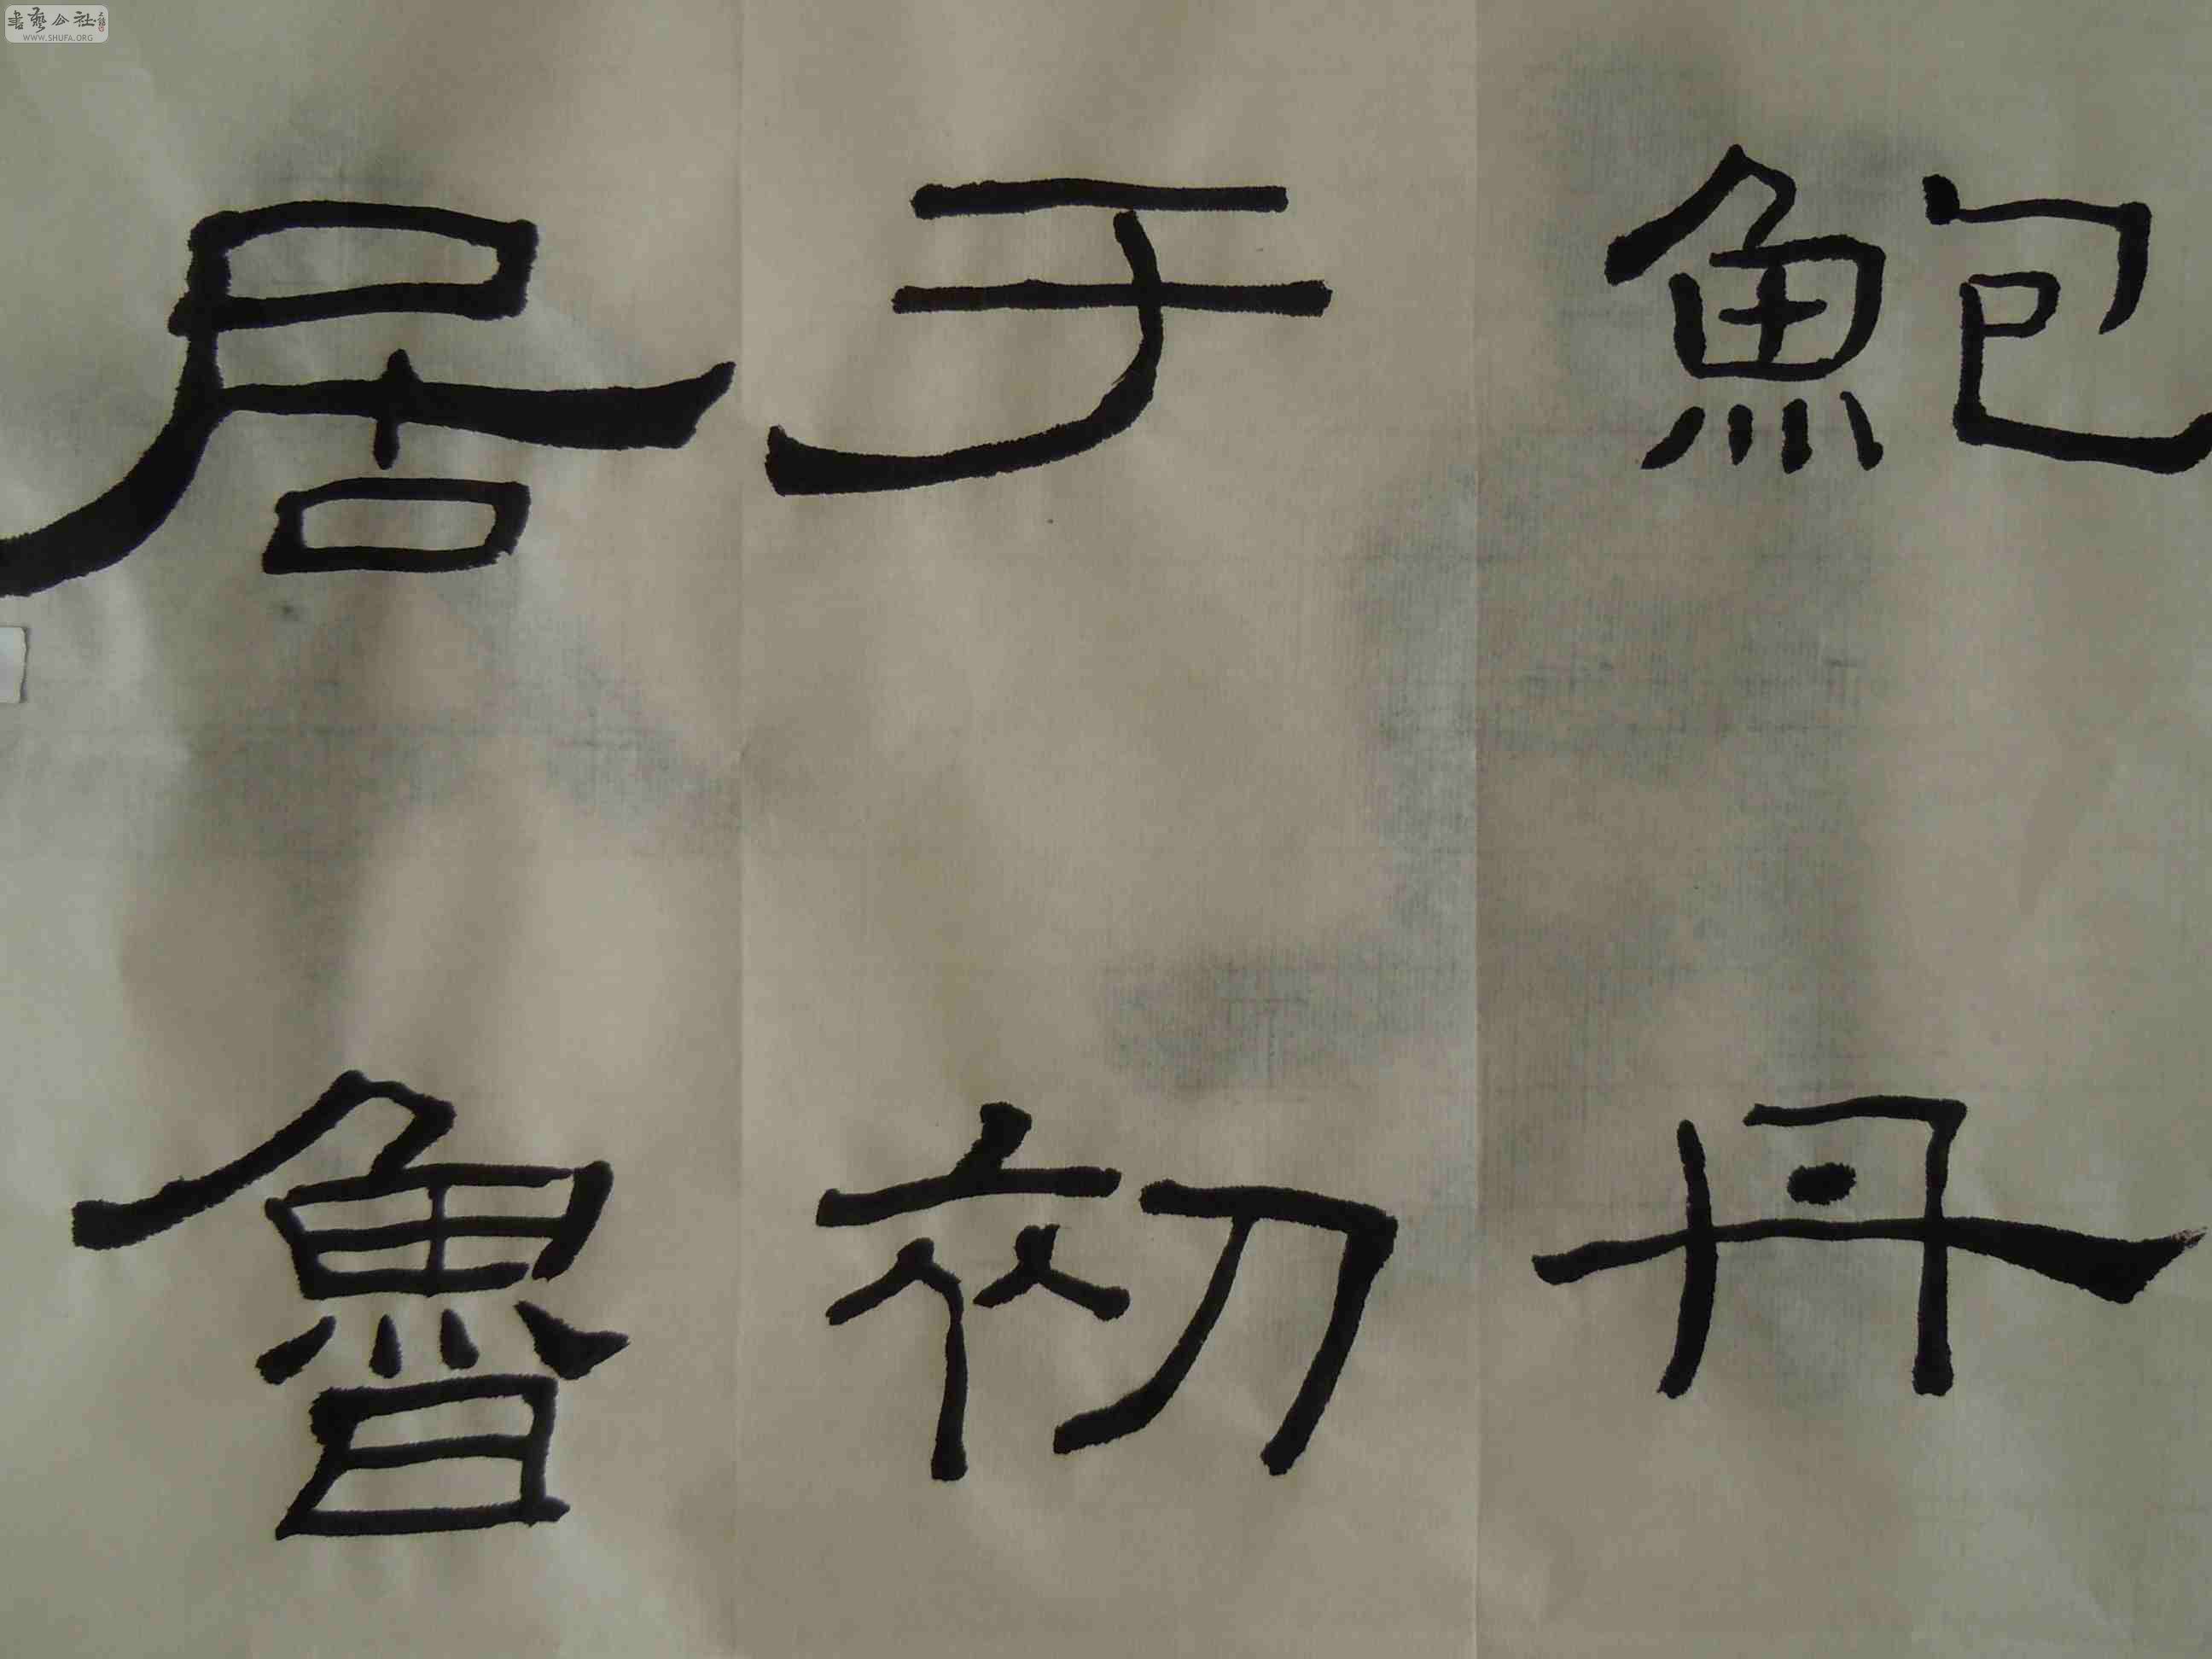 書藝公社
WWW.SHUFA.ORG
鮑丹
于初
居魯